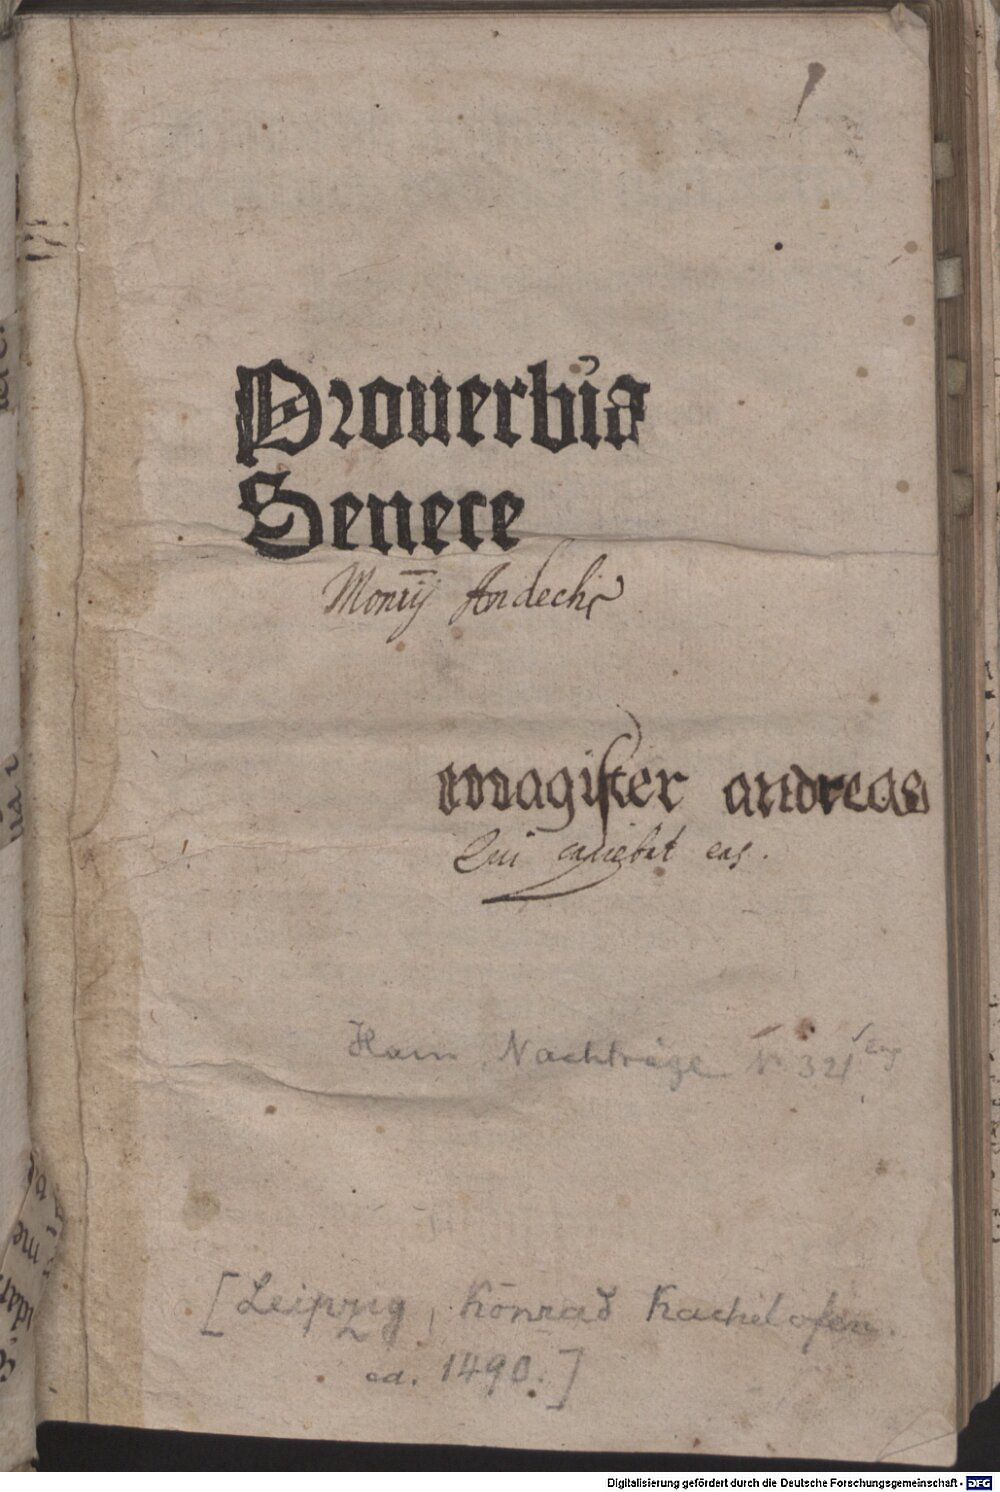 Prouerbia
Senece
Montis Andechs
magister andreas
Qui
Hain, Nachträge Nr 321
[Leipzig, Konrad Kachelofen.
ca. 1490.]
Digitalisierung gefördert durch die Deutsche Forschungsgemeinschaft - DFG